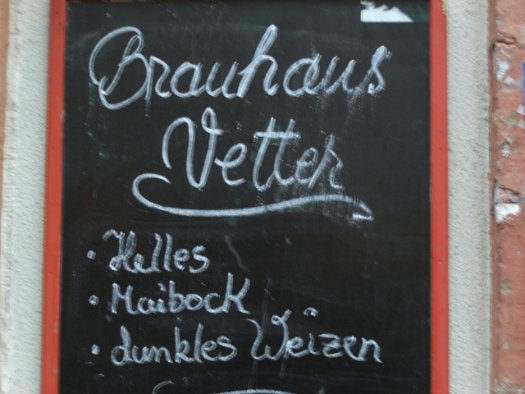 Brauhaus
Vetter
· Helles
· Maibock
· dunkles Weizen